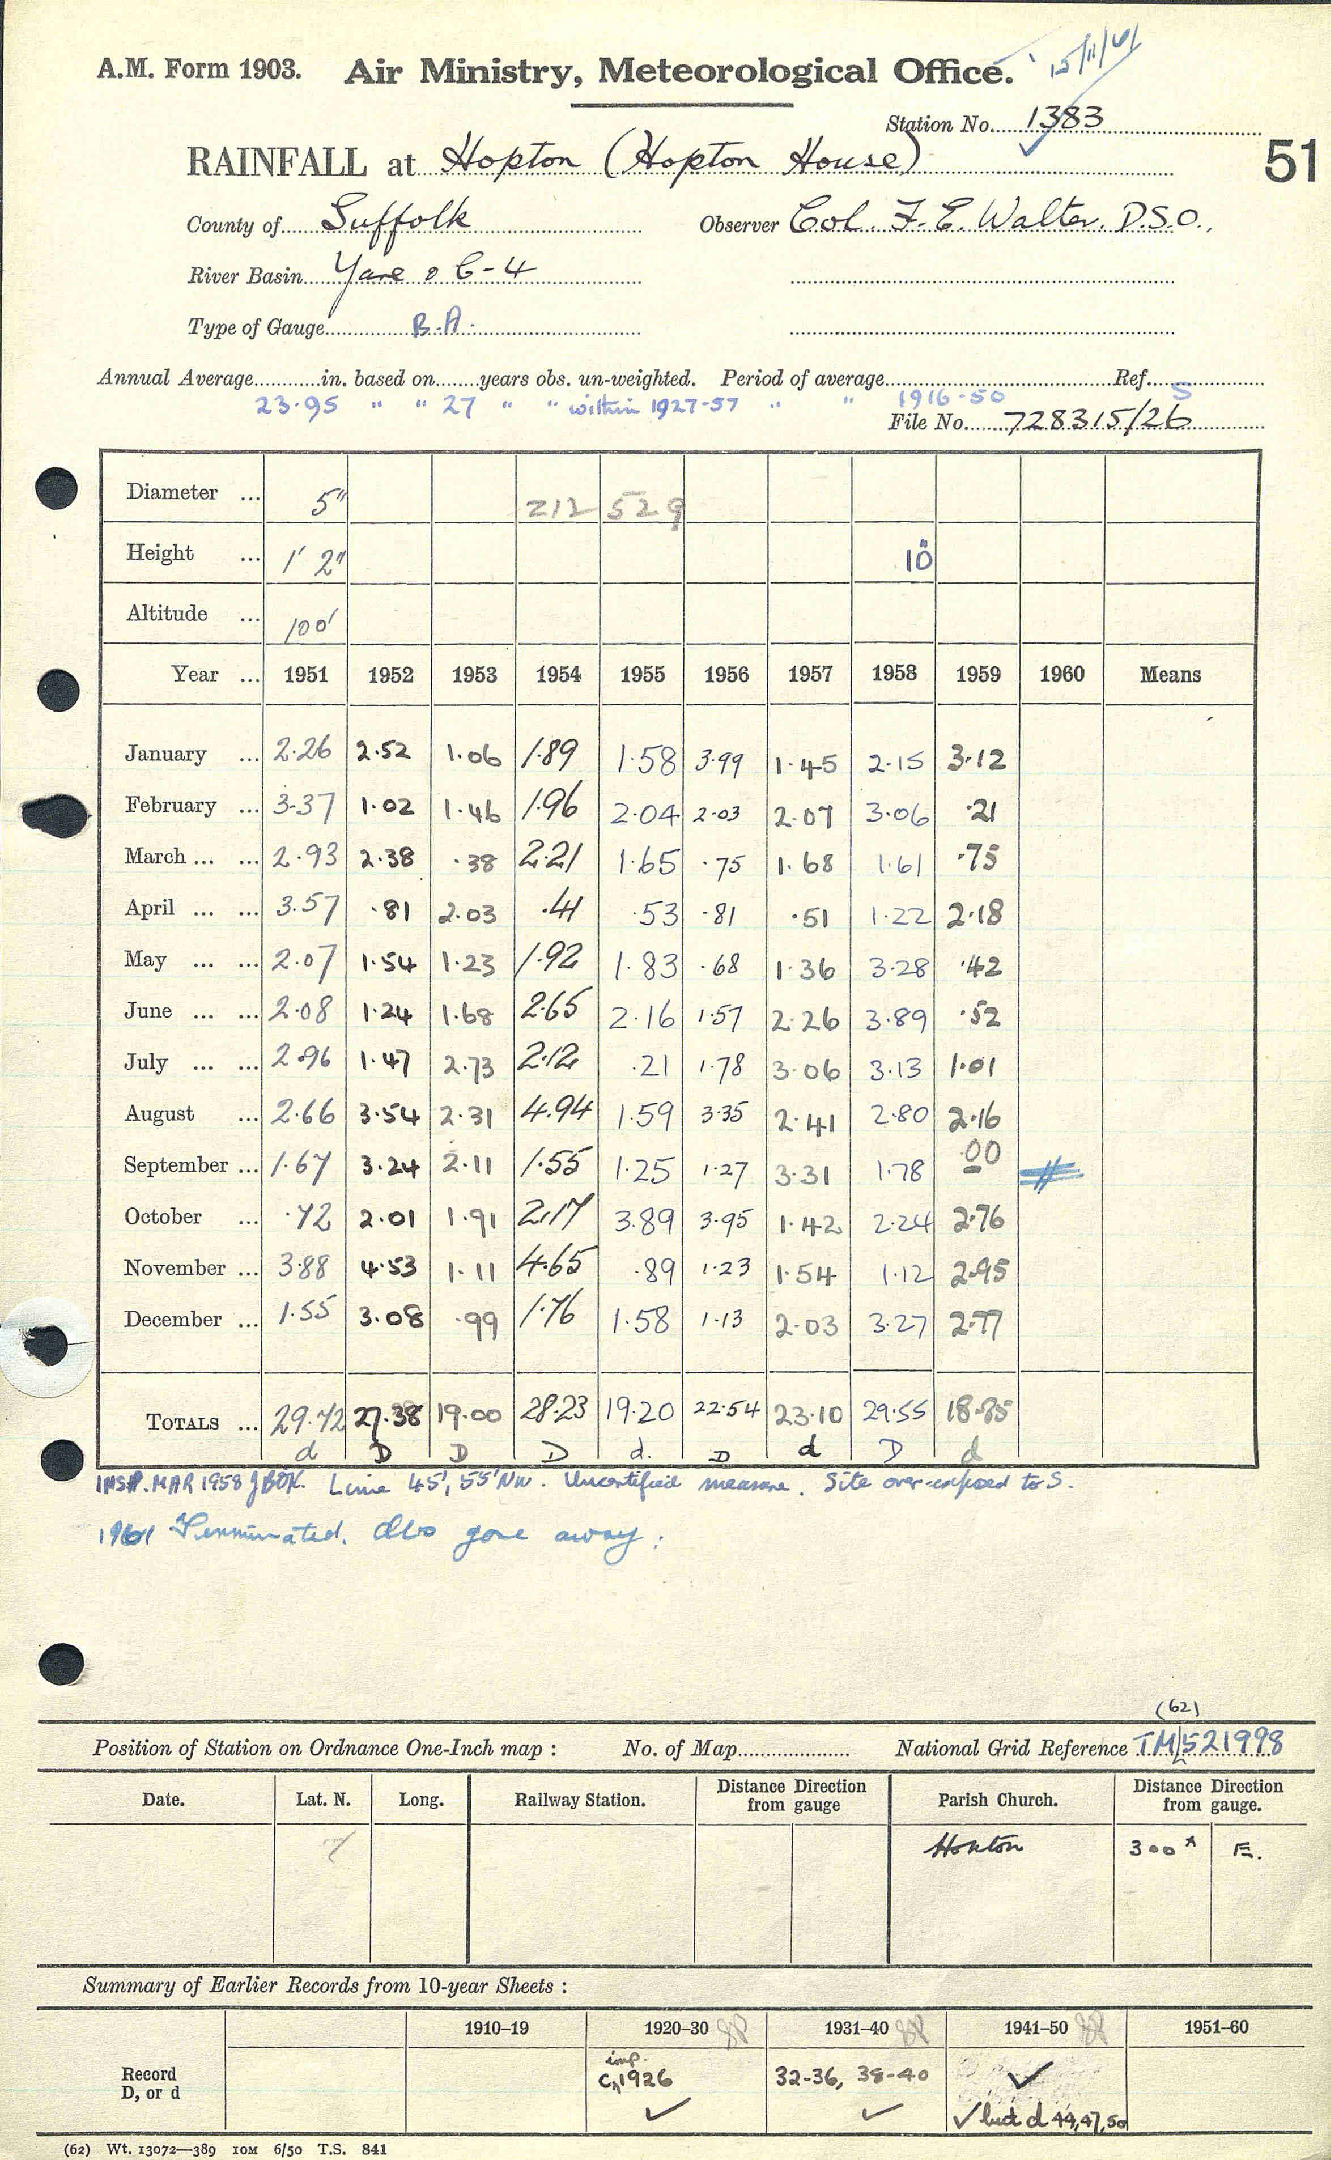 15/11/61
A.M. Form 1903. Air Ministry, Meteorological Office.
Station No. 1383
51
RAINFALL at Hopton (Hopton House)
County of Suffolk Observer Col. F. E. Walter. D.S.O.,
River Basin Yare 6-4
Type of Gauge B.A.
Annual Average in. based on years obs. un-weighted. Period of average Ref. S
23.95 " " 27 " " within 1927-57 " " 1916-50
File No. 728315/26
Diameter ... 5" 212 529
Height ... 1' 2" 10"
Altitude ... 100'
Year ... 1951 1952 1953 1954 1955 1956 1957 1958 1959 1960 Means
January ... 2.26 2.52 1.06 1.89 1.58 3.99 1.45 2.15 3.12
February ... 3.37 1.02 1.46 1.96 2.04 2.03 2.07 3.06 .21
March ... ... 2.93 2.38 .38 2.21 1.65 .75 1.68 1.61 .75
April ... ... 3.57 .81 2.03 .41 .53 .81 .51 1.22 2.18
May ... ... 2.07 1.54 1.23 1.92 1.83 .68 1.36 3.28 .42
June ... ... 2.08 1.24 1.68 2.65 2.16 1.57 2.26 3.89 .52
July ... ... 2.96 1.47 2.73 2.12 .21 1.78 3.06 3.13 1.01
August ... 2.66 3.54 2.31 4.94 1.59 3.35 2.41 2.80 2.16
September ... 1.67 3.24 2.11 1.55 1.25 1.27 3.31 1.78 .00
October ... .72 2.01 1.91 2.17 3.89 3.95 1.42 2.24 2.76
November ... 3.88 4.53 1.11 4.65 .89 1.23 1.54 1.12 2.95
December ... 1.55 3.08 .99 1.76 1.58 1.13 2.03 3.27 2.77
TOTALS ... 29.72 27.38 19.00 28.23 19.20 22.54 23.10 29.55 18.85
d D D D d. D d D d
INSP. MAR 1958 Lime 45', 55' NW. Uncertified measure. Site over-exposed to S.
1961 Terminated. Obs gone away.
(62)
Position of Station on Ordnance One-Inch map : No. of Map National Grid Reference TM/521998
Date. Lat. N. Long. Railway Station. Distance Direction from gauge Parish Church. Distance Direction from gauge.
Hopton 300 E.
Summary of Earlier Records from 10-year Sheets :
1910–19 1920–30 1931–40 1941–50 1951–60
Record D, or d imp. 1926 ✓ 32-36, 38-40 ✓ ✓
✓ but d 44,47,50
(62) Wt. 13072—389 10M 6/50 T.S. 841